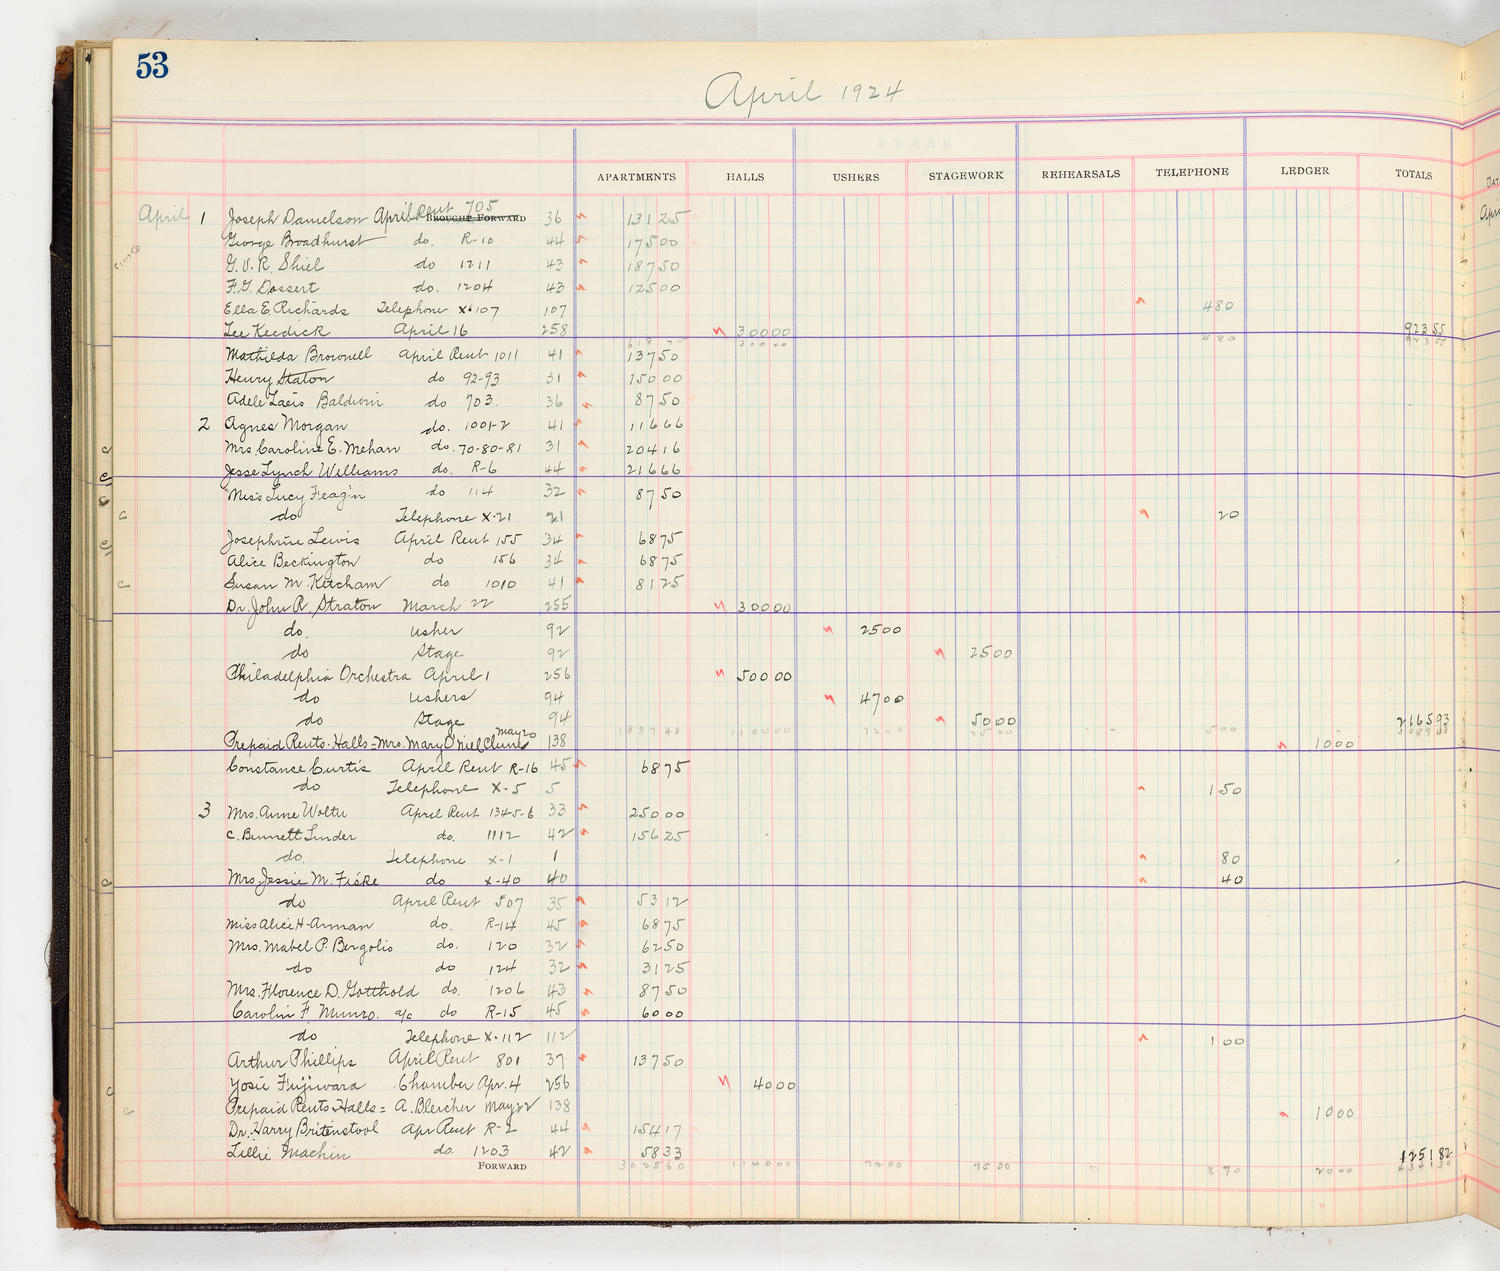 53
April 1924
APARTMENTS HALLS USHERS STAGEWORK REHEARSALS TELEPHONE LEDGER TOTALS
April 1 Joseph Danielson April Rent 705 BROUGHT FORWARD 36 131 25
George Broadhurst do. R-10 44 175 00
G.V.R. Shiel do 1211 43 187 50
F.G. Dossert do. 1204 43 125 00
Ella E Richards Telephone X-107 107 4 80
Lee Keedick April 16 258 300 00 923 55
618 75 300 00 4 80 923 55
Mathilda Brownell April Rent 1011 41 137 50
Henry Staton do 92-93 31 150 00
Adele Laeis Baldwin do 703. 36 87 50
2 Agnes Morgan do. 1001-2 41 116 66
Mrs. Caroline E. Mehan do. 70-80-81 31 204 16
Jesse Lynch Williams do. R-6 44 216 66
Miss Lucy Feagin do 114 32 87 50
do Telephone X-21 21 20
Josephine Lewis April Rent 155 34 68 75
Alice Beckington do 156 34 68 75
Susan M. Ketcham do 1010 41 81 25
Dr. John R. Straton March 22 255 300 00
do. usher 92 25 00
do Stage 92 25 00
Philadelphia Orchestra April 1 256 500 00
do ushers 94 47 00
do Stage 94 50 00 2165 93
1837 48 1100 00 72 00 75 00 5 00 3089 48
Prepaid Rents-Halls = Mrs. Mary O'Niel Clune May 20 138 10 00
Constance Curtis April Rent R-16 45 68 75
do Telephone X-5 5 1 50
3 Mrs. Anne Wolter April Rent 134-5-6 33 250 00
C. Bennett Linder do. 1112 42 156 25
do. Telephone X-1 1 80
Mrs. Jessie M. Fiske do X-40 40 40
do April Rent 507 35 53 12
Miss Alice H. Arman do. R-14 45 68 75
Mrs. Mabel P. Bergolio do. 120 32 62 50
do do 124 32 31 25
Mrs. Florence D. Gotthold do. 1206 43 87 50
Carolin F. Munro. a/c do R-15 45 60 00
do Telephone X-112 112 1 00
Arthur Phillips April Rent 801 37 137 50
Yosie Fujiwara Chamber Apr. 4 256 40 00
Prepaid Rents Halls = A. Bleicher May 22 138 10 00
Dr. Harry Britenstool Apr Rent R-2 44 154 17
Lillie Machin do. 1203 42 58 33 1251 82
FORWARD 3025 60 1140 00 72 00 75 00 8 70 20 00 4341 30